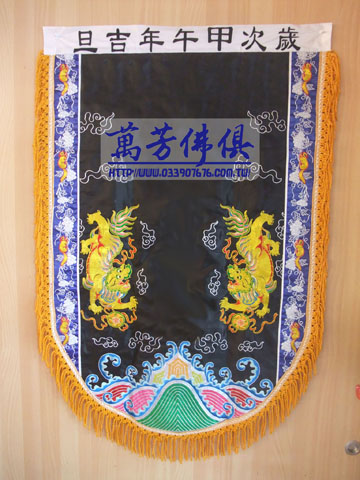 歲次甲午年吉旦
萬芳佛俱
HTTP://WWW.033907676.COM.TW/